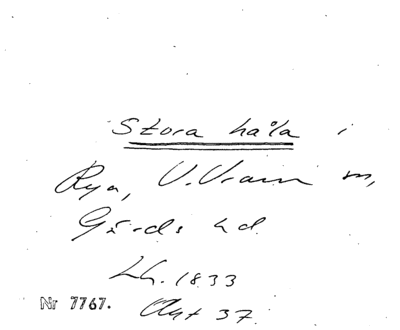 Stora håla i
Rya, V. Vram m,
Gärds hd.
Lh. 1833
Akt 37
Nr 7767.